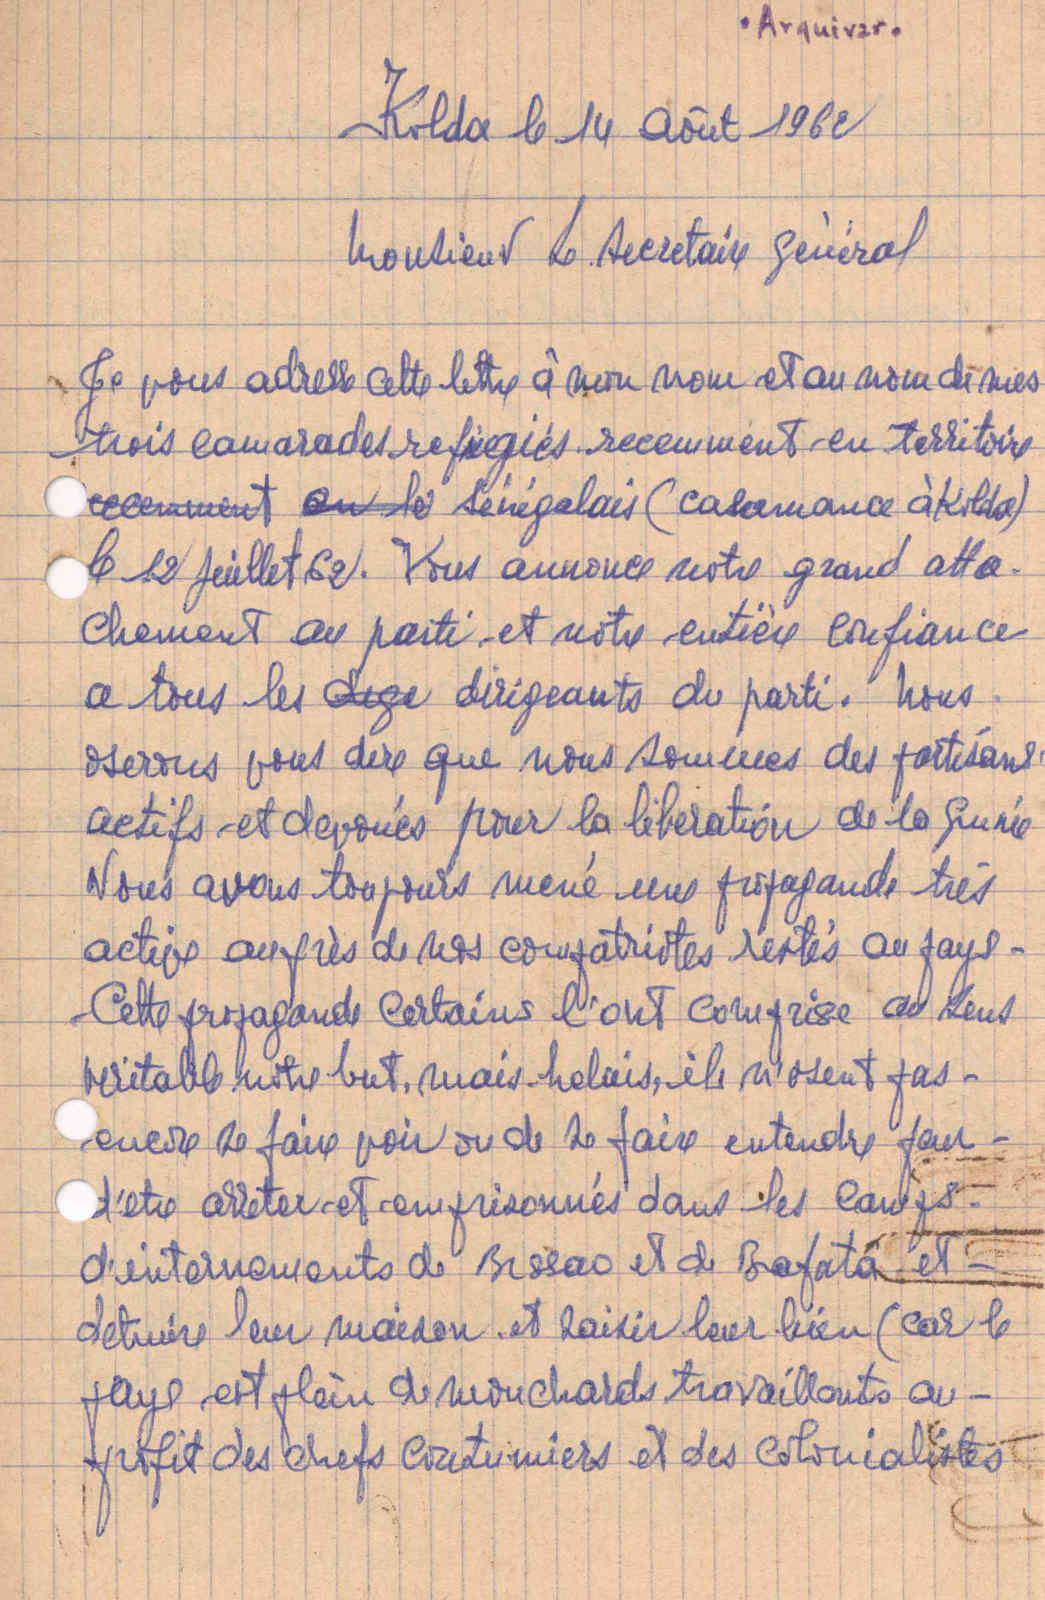 • Arquivar •
Kolda le 14 août 1962
Monsieur le Secretaire Général
Je vous adresse cette lettre à mon nom et au nom de mes
trois camarades refugiés recemment en territoire
recemment au le sénégalais (casamance à Kolda)
le 12 Juillet 62. Vous annonce notre grand atta-
chement au parti et notre entière confiance
a tous les dirigeants du parti. Nous
oserons vous dire que nous sommes des partisans
actifs et devoués pour la libération de la Guinée
Nous avons toujours mené une propagande très
active auprès de nos compatriotes restés au pays -
Cette propagande certains l'ont comprise au sens
veritable notre but, mais helais, ils n'osent pas -
encore se faire voir ou de se faire entendre peur -
d'etre arreter et emprisonnés dans les camps -
d'internements de Bissao et de Bafatá et -
detruire leur maison et saisir leur bien (car le
pays est plein de mouchards travaillants au -
profit des chefs coutumiers et des colonialistes